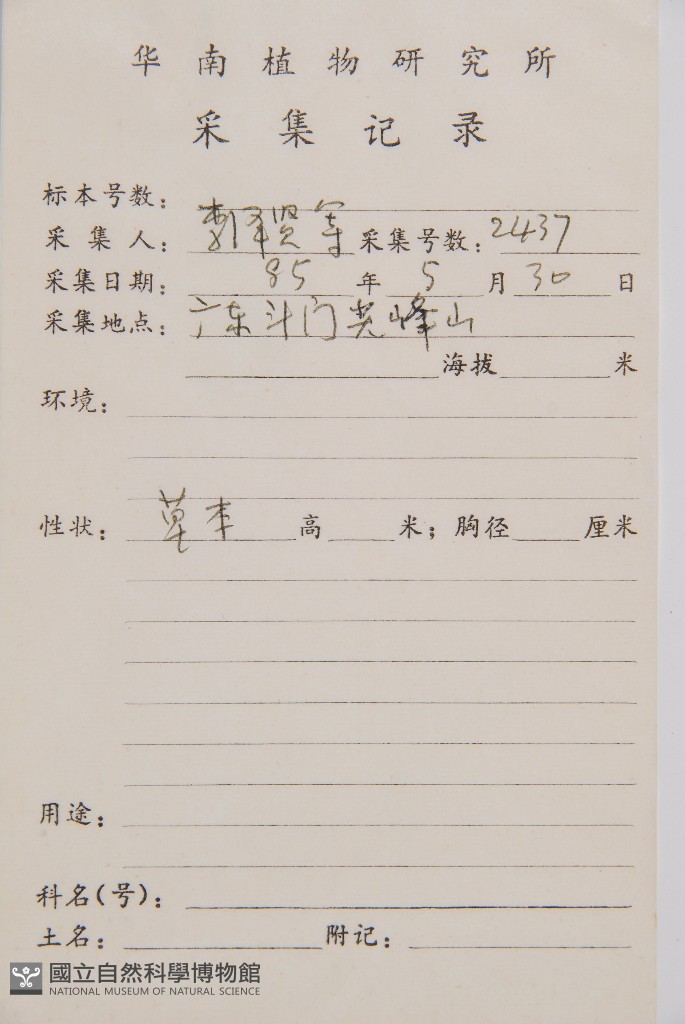 华南植物研究所
采集记录
标本号数：
采集人：李泽贤等 采集号数：2437
采集日期：85年5月30日
采集地点：广东斗门尖峰山
海拔 米
环境：
性状：草本 高 米；胸径 厘米
用途：
科名（号）：
土名： 附记：
國立自然科學博物館
NATIONAL MUSEUM OF NATURAL SCIENCE